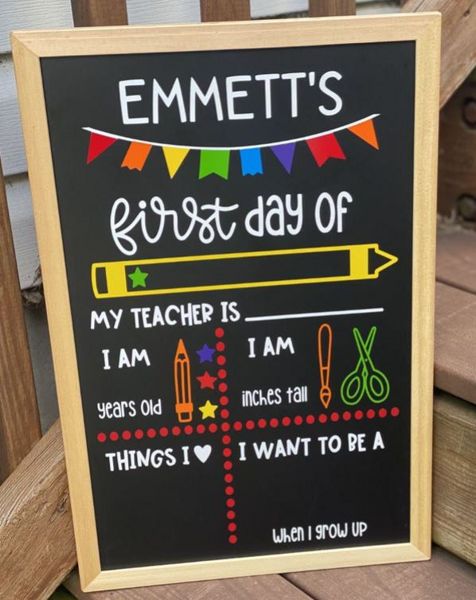 EMMETT'S
first day of
MY TEACHER IS
I AM
years old
I AM
inches tall
THINGS I ♥
I WANT TO BE A
when I grow up